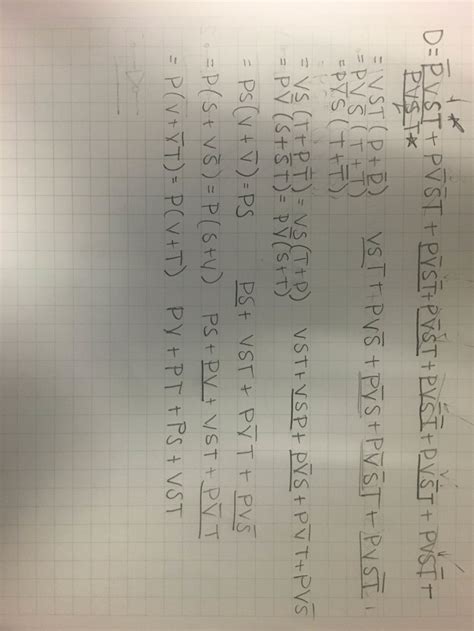 D = P̄VST + PV̄S̄T + PV̄ST̄ + PV̄ST + PVS̄T̄ + PVS̄T + PVST̄ +
PVST*
= VST (P+P̄)    VST + PVS̄ + PV̄S + PV̄S̄T + PVST̄
= PVS̄ (T+T̄)
= PV̄S (T+T̄)
= VS (T+PT̄) = VS (T+P)    VST + VSP + PV̄S + PV̄T + PVS̄
= PV̄ (S+S̄T) = PV̄ (S+T)
= PS (V+V̄) = PS    PS + VST + PV̄T + PVS̄
= P(S+VS̄) = P(S+V)    PS + PV + VST + PV̄T
= P(V+V̄T) = P(V+T)    PV + PT + PS + VST